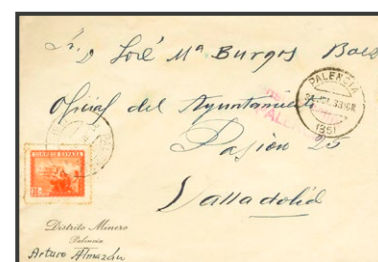 Sr. D José Mª Burgos Baez
Oficial del Ayuntamiento
Pasión 20
Valladolid
PALENCIA
CORREOS ESPAÑA
Distrito Minero
Palencia
Arturo Almazán